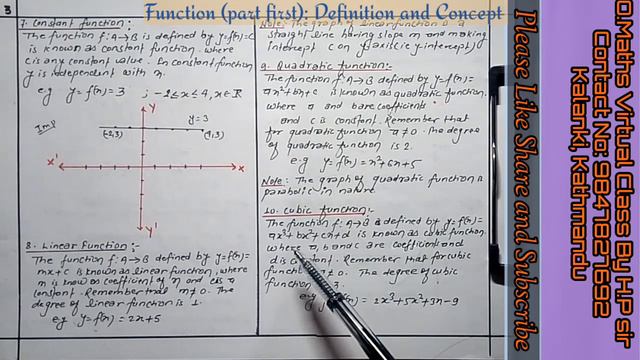 3
Function (part first): Definition and Concept
7. Constant function:-
The function f: A→B is defined by y=f(x)=C
is known as constant function. where
C is any constant value. In constant function
y is independent with x.
e.g y = f(x) = 3 ; -2≤x≤4, x∈R
Imp
Y
y=3
(-2,3)
X'
X
Y'
8. Linear Function:-
The function f: A→B defined by y=f(x)=
mx+c is known as linear function, where
m is known as coefficient of x and c is a
constant. Remember that m≠0. The
degree of linear function is 1.
e.g y = f(x) = 2x+5
Note: The graph of linear function is
straight line having slope m and making
intercept c on y axis (c = y intercept)
9. Quadratic function:-
The function f: A→B defined by y=f(x)=
ax²+bx+c is known as quadratic function.
where a and b are coefficients
and c is constant. Remember that
for quadratic function a≠0. The degree
of quadratic function is 2.
e.g y = f(x) = x²+6x+5
Note: The graph of quadratic function is
parabolic in nature
10. Cubic function:-
The function f: A→B is defined by y=f(x)=
ax³+bx²+cx+d is known as cubic function.
where a, b and c are coefficient and
d is constant. Remember that for cubic
≠0. The degree of cubic
function 3.
e.g = 2x³+5x²+3x-9
Please Like Share and Subscribe
O.Maths Vroup By H.P sir
Contact No: 9847827692
Kalanki, Kathmandu